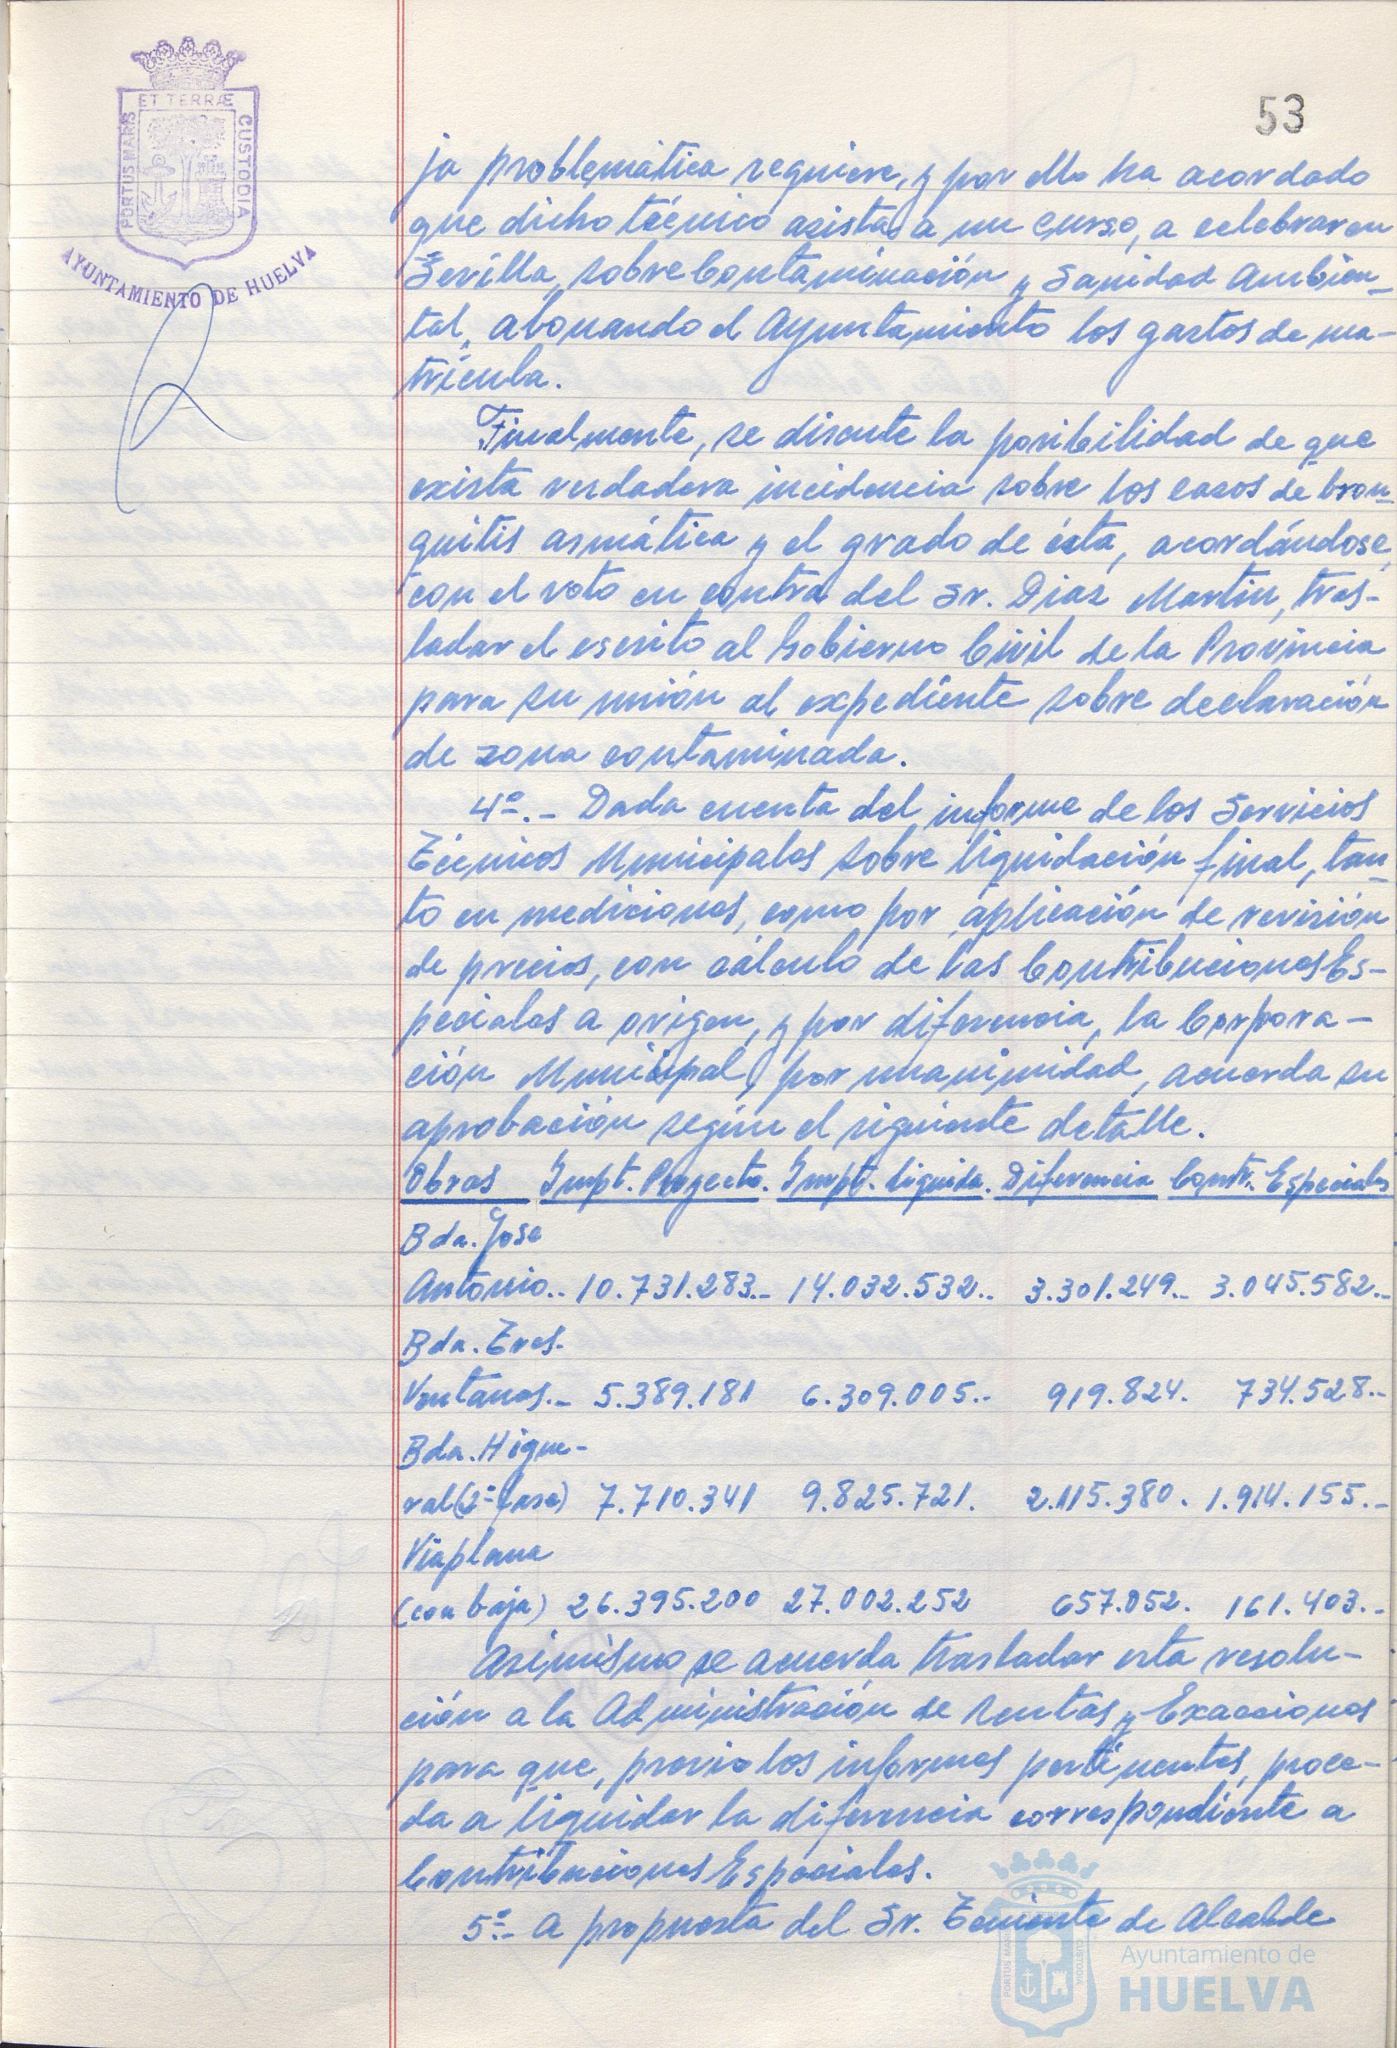 ET TERRÆ
PORTUS MARIS
CUSTODIA
AYUNTAMIENTO DE HUELVA
53
ja problemática requiere, y por ello ha acordado
que dicho técnico asista a un curso, a celebrar en
Sevilla, sobre Contaminación y Sanidad Ambien-
tal, abonando el Ayuntamiento los gastos de ma-
trícula.
Finalmente, se discute la posibilidad de que
exista verdadera incidencia sobre los casos de bron-
quitis asmática y el grado de ésta, acordándose,
con el voto en contra del Sr. Diaz Martin, tras-
ladar el escrito al Gobierno Civil de la Provincia
para su unión al expediente sobre declaración
de zona contaminada.
4º.- Dada cuenta del informe de los Servicios
Técnicos Municipales sobre liquidación final, tan-
to en mediciones, como por aplicación de revisión
de precios, con cálculo de las Contribuciones Es-
peciales a origen, y por diferencia, la Corpora-
ción Municipal, por unanimidad, acuerda su
aprobación según el siguiente detalle.
Obras Impt. Proyecto. Impt. liquida. Diferencia Contr. Especiales
Bda. Jose
Antonio.. 10.731.283.- 14.032.532.. 3.301.249.- 3.045.582.-
Bda. Tres
Ventanas.- 5.389.181 6.309.005.- 919.824. 734.528.-
Bda. Higue-
ral (2ª fase) 7.710.341 9.825.721. 2.115.380. 1.914.155.-
Viaplana
(con baja) 26.395.200 27.002.252 657.052. 161.403.-
Asimismo se acuerda trasladar esta resolu-
ción a la Administración de Rentas y Exacciones
para que, previo los informes pertinentes, proce-
da a liquidar la diferencia correspondiente a
Contribuciones Especiales.
5º.- A propuesta del Sr. Teniente de Alcalde
PORTUS MARIS
CUSTODIA
Ayuntamiento de
HUELVA